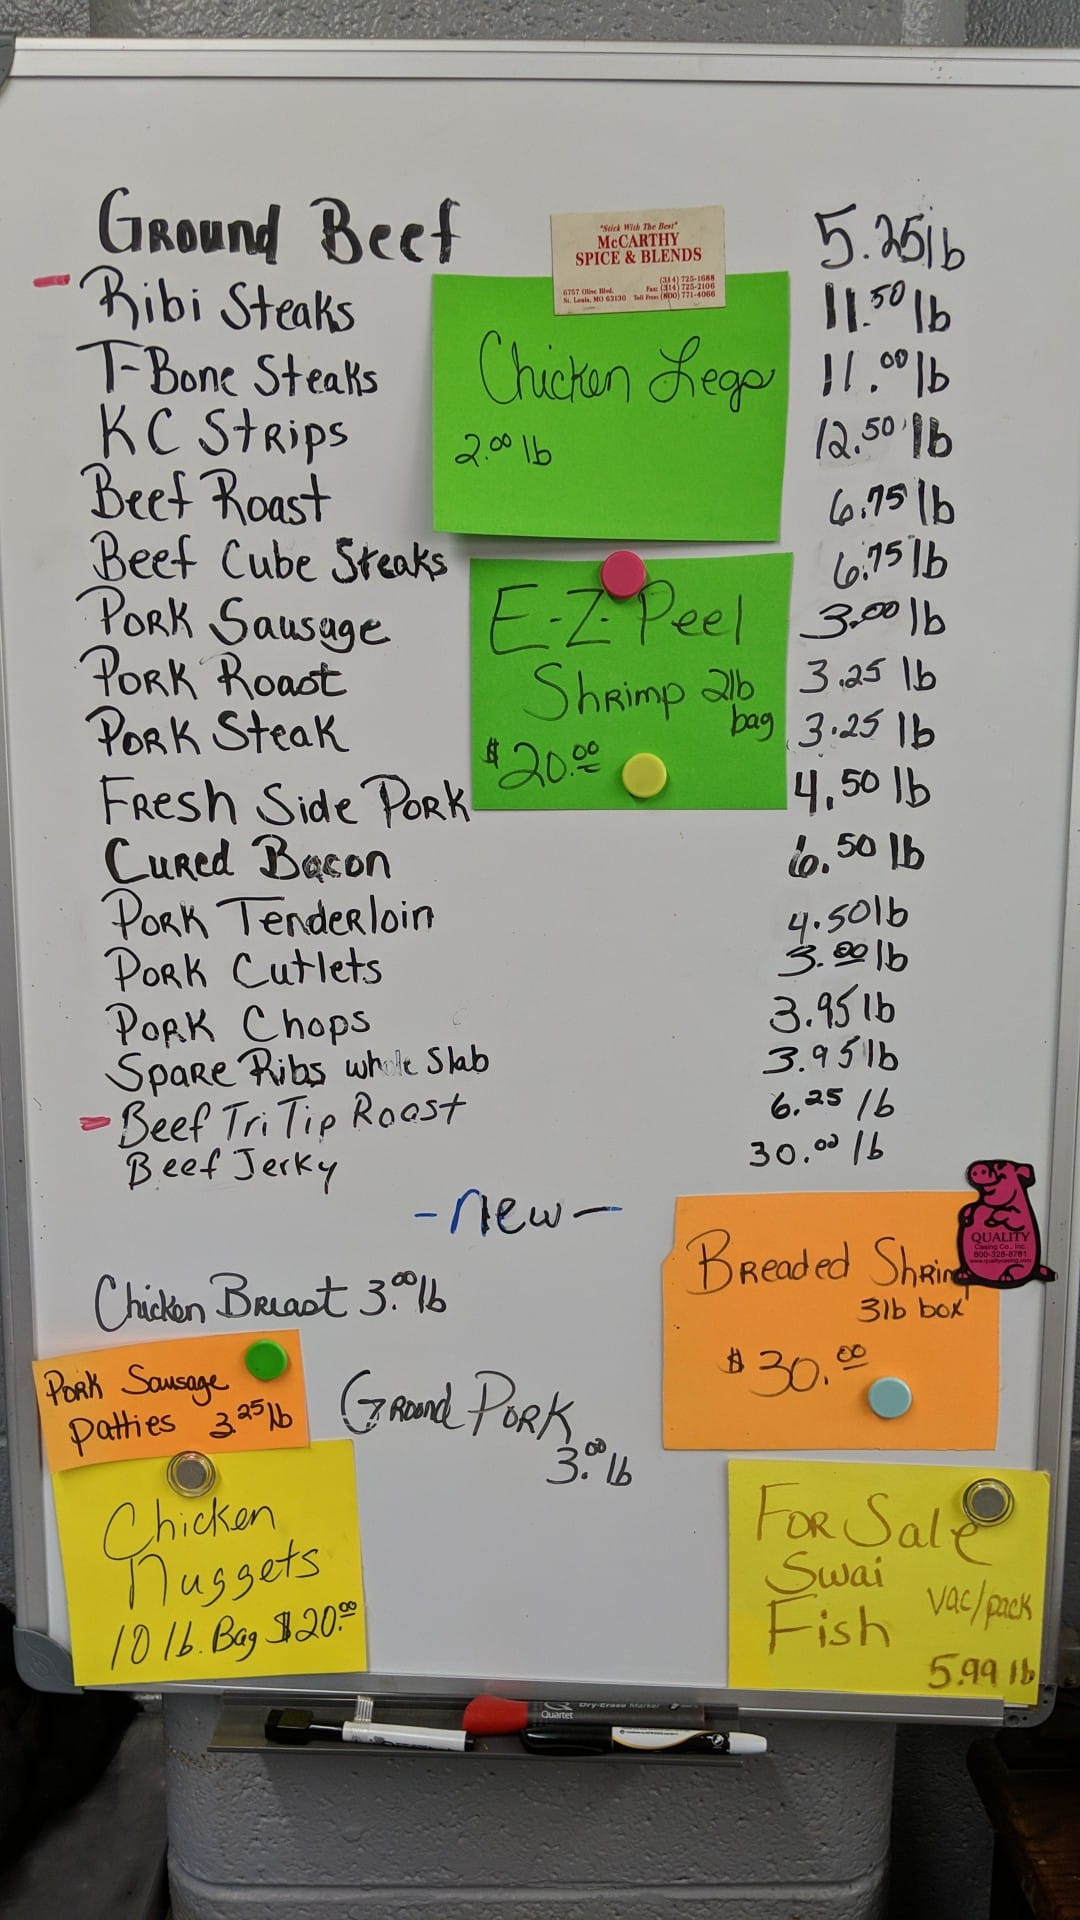 Ground Beef 5.25 lb
Ribi Steaks 11.50 lb
T-Bone Steaks 11.00 lb
KC Strips 12.50 lb
Beef Roast 6.75 lb
Beef Cube Steaks 6.75 lb
Pork Sausage 3.00 lb
Pork Roast 3.25 lb
Pork Steak 3.25 lb
Fresh Side Pork 4.50 lb
Cured Bacon 6.50 lb
Pork Tenderloin 4.50 lb
Pork Cutlets 3.00 lb
Pork Chops 3.95 lb
Spare Ribs whole Slab 3.95 lb
Beef Tri Tip Roast 6.25 lb
Beef Jerky 30.00 lb
"Stick With The Best"
McCARTHY
SPICE & BLENDS
(314) 725-1688
6757 Olive Blvd. Fax: (314) 725-2106
St. Louis, MO 63130 Toll Free: (800) 771-4066
Chicken Legs
2.00 lb
E-Z-Peel
Shrimp 2lb
bag
$20.00
-new-
Chicken Breast 3.00 lb
Pork Sausage
patties 3.25 lb
Ground Pork
3.00 lb
Chicken
Nuggets
10 lb. Bag $20.00
Breaded Shrimp
3lb box
$30.00
QUALITY
Casing Co., Inc.
800-328-8701
www.qualitycasing.com
For Sale
Swai
Fish vac/pack
5.99 lb
Quartet
Dry-Erase Marker